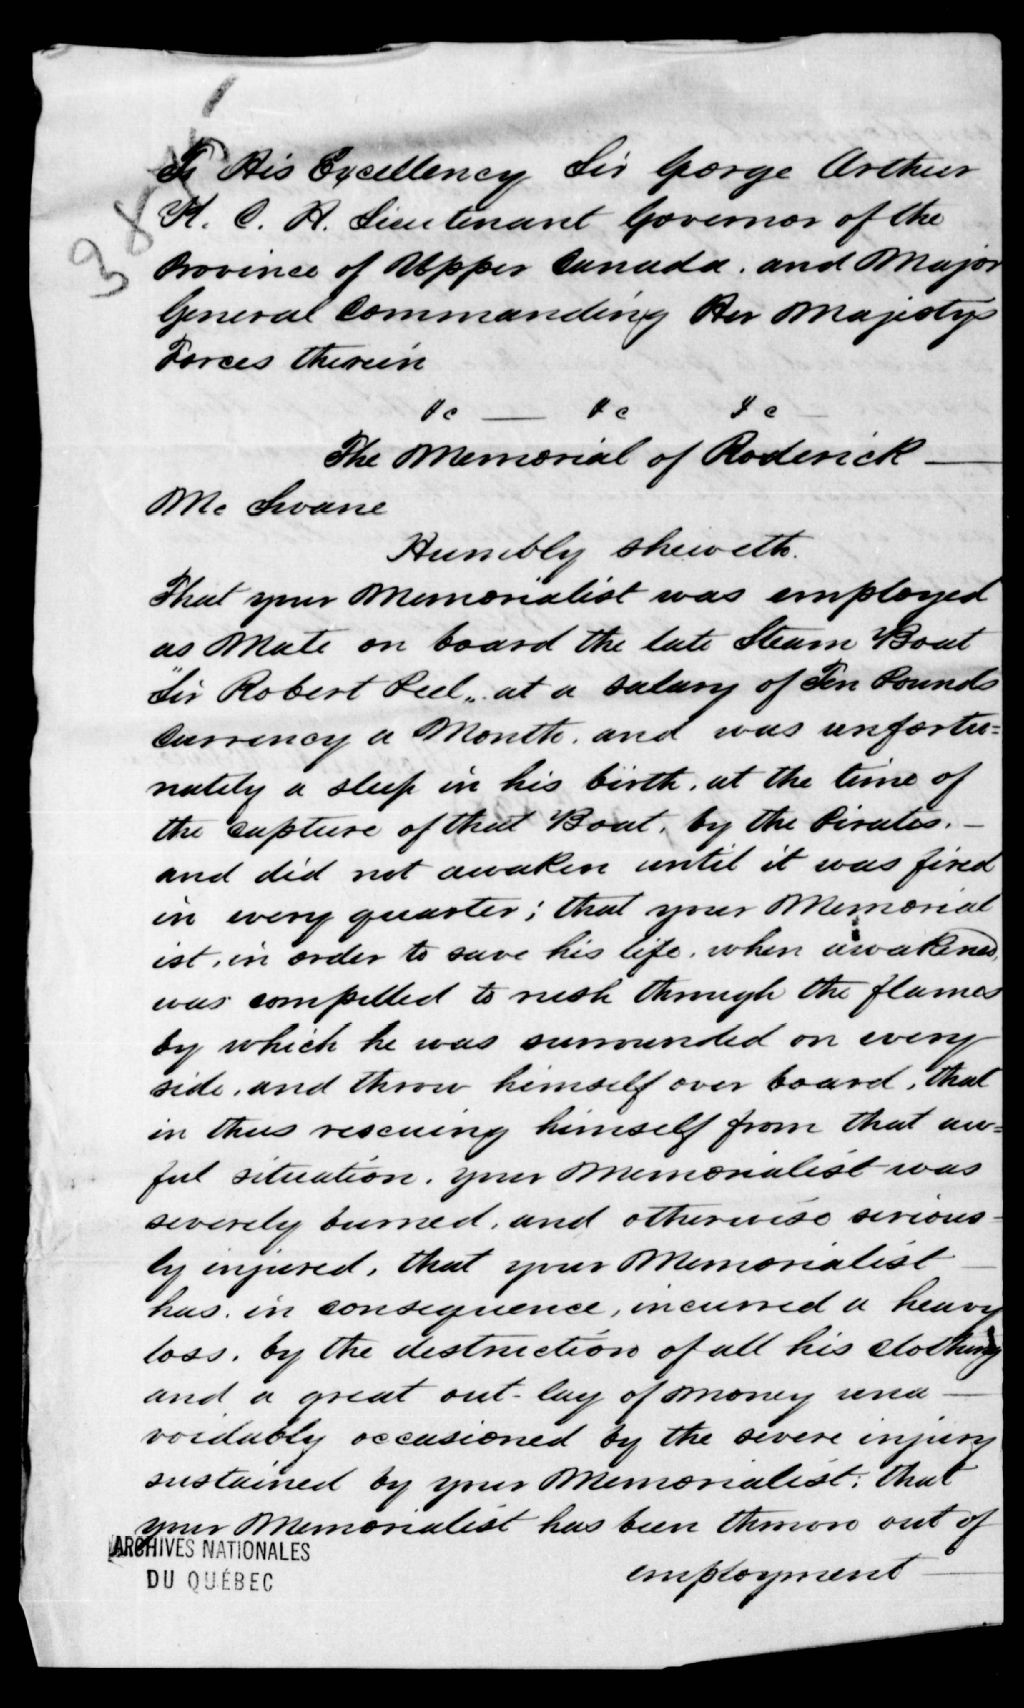 3875
To His Excellency Sir George Arthur
K. C. H. Lieutenant Governor of the
Province of Upper Canada. and Major
General Commanding Her Majestys
Forces therein
&c — &c &c —
The Memorial of Roderick —
Mc Swane
Humbly sheweth.
That your Memorialist was employed
as Mate on board the late Steam Boat
"Sir Robert Peel„ at a salary of Ten Pounds
Currency a Month. and was unfortu=
nately a sleep in his birth. at the time of
the capture of that Boat, by the Pirates. —
and did not awaken until it was fired
in every quarter; that your Memorial
ist. in order to save his life. when awakened,
was compelled to rush through the flames
by which he was surrounded on every
side. and throw himself over board. that
in thus rescuing himself from that aw=
ful situation. your Memorialist was
severely burned. and otherwise serious=
ly injured. that your Memorialist —
has. in consequence, incurred a heavy
loss. by the destruction of all his clothing
and a great out-lay of money una —
voidably occasioned by the severe injury
sustained by your Memorialist: that
your Memorialist has been thrown out of
employment —
ARCHIVES NATIONALES
DU QUÉBEC